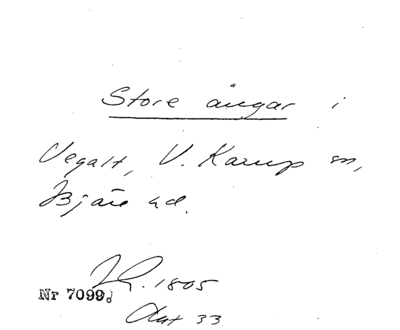 Store ängar i
Vegalt, V. Karup sn,
Bjäre hd.
R. 1805
Nr 7099.
Akt 33